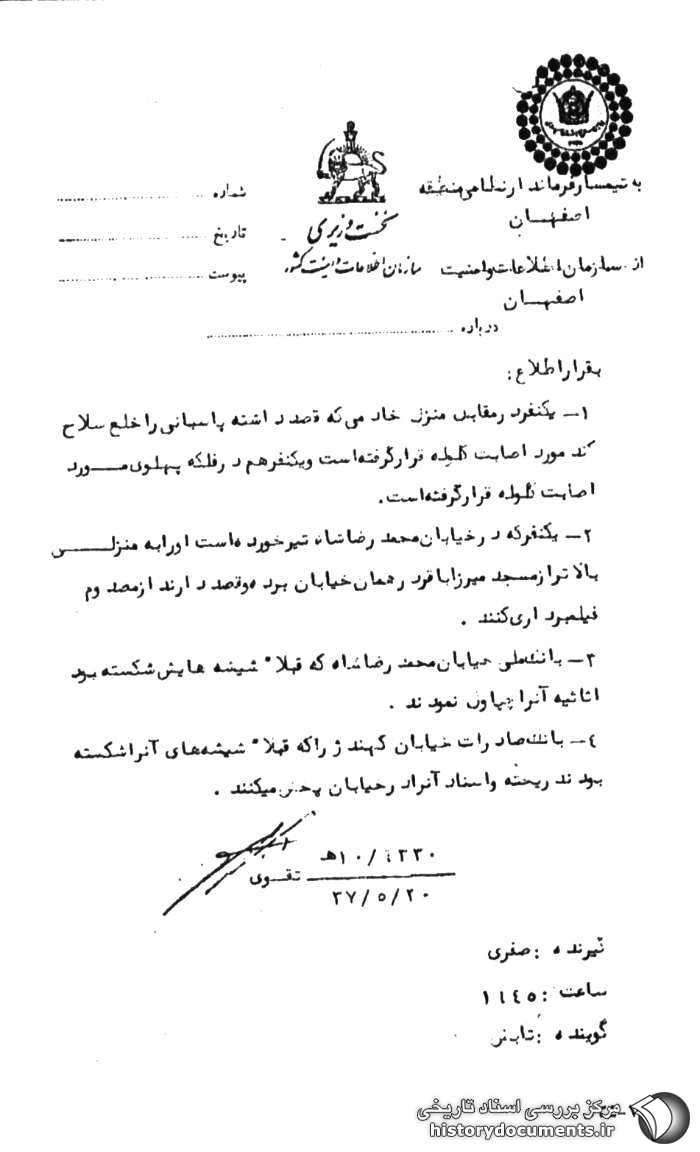 به تیمسار فرماندار نظامی منطقه
اصفهان
از سازمان اطلاعات و امنیت
اصفهان
نخست وزیری
سازمان اطلاعات و امنیت کشور
شماره
تاریخ
پیوست
درباره
بقرار اطلاع :
۱- یکنفر در مقابل منزل خادمی که قصد داشته پاسبانی را خلع سلاح
کند مورد اصابت گلوله قرار گرفته است ویکنفر هم در فلکه پهلوی مورد
اصابت گلوله قرار گرفته است.
۲- یکنفر که در خیابان محمد رضا شاه تیر خورده است او را به منزلی
بالاتر از مسجد میرزا باقر در همان خیابان برده و قصد دارند از مصدوم
فیلمبرداری کنند .
۳- بانک ملی خیابان محمد رضا شاه که قبلاً شیشه هایش شکسته بود
اثاثیه آنرا چپاول نمودند .
٤- بانک صادرات خیابان کهندژ را که قبلاً شیشه های آنرا شکسته
بودند ریخته و اسناد آنرا در خیابان پخش میکنند .
۱۰/٤۲۳۰ هـ
تقوی
۳۷/۵/۲۰
گیرنده : صفری
ساعت : ۱٦٤٥
گوینده : تابش
مرکز بررسی اسناد تاریخی
historydocuments.ir